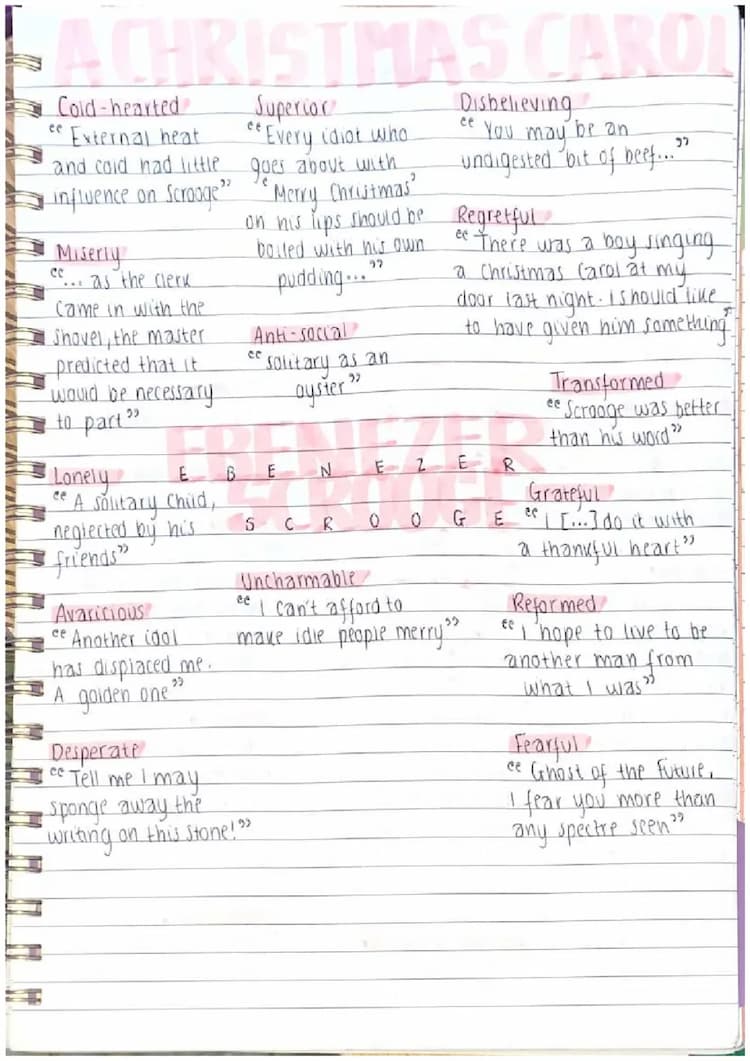 A CHRISTMAS CAROL
Cold-hearted
“External heat
and cold had little
influence on Scrooge”
Superior
“Every idiot who
goes about with
‘Merry Christmas’
on his lips should be
boiled with his own
pudding...”
Disbelieving
“You may be an
undigested bit of beef...”
Regretful
“There was a boy singing
a Christmas Carol at my
door last night. I should like
to have given him something”
Miserly
“... as the clerk
came in with the
shovel, the master
predicted that it
would be necessary
to part”
Anti-social
“solitary as an
oyster”
Transformed
“Scrooge was better
than his word”
EBENEZER
SCROOGE
E B E N E Z E R
S C R O O G E
Lonely
“A solitary child,
neglected by his
friends”
Grateful
“I [...] do it with
a thankful heart”
Uncharmable
“I can't afford to
make idle people merry”
Avaricious
“Another idol
has displaced me.
A golden one”
Reformed
“I hope to live to be
another man from
what I was”
Desperate
“Tell me I may
sponge away the
writing on this stone!”
Fearful
“Ghost of the Future,
I fear you more than
any spectre seen”